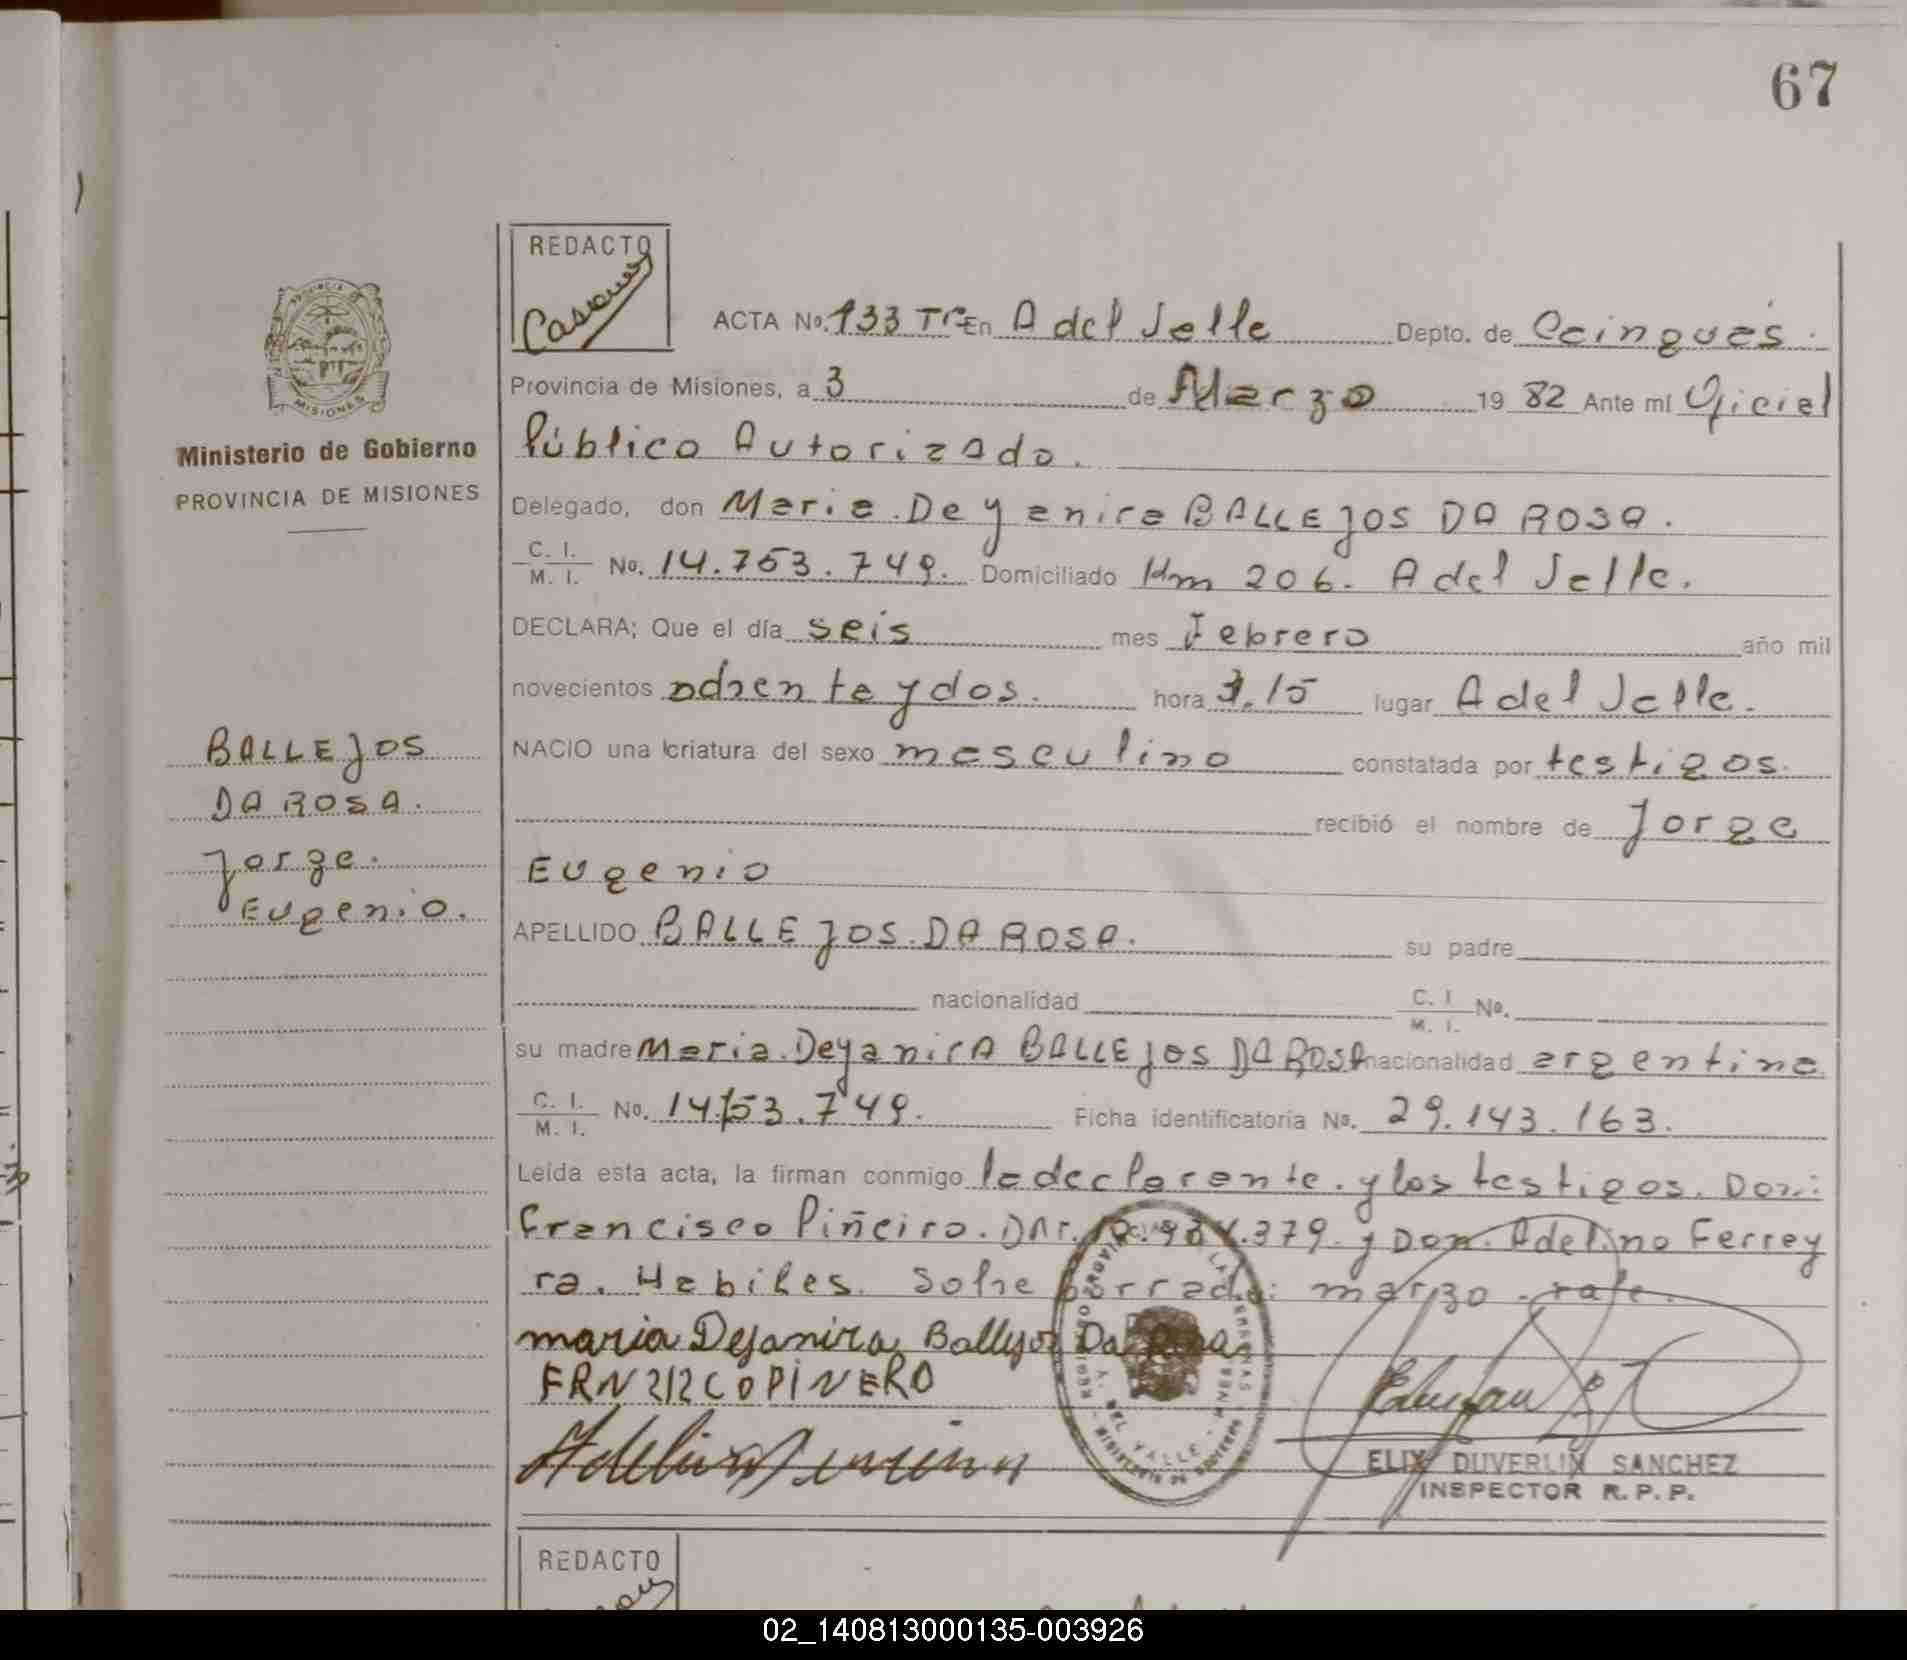 67
REDACTO
ACTA No. 133 Tº En A del Valle Depto. de Cainguás.
Provincia de Misiones, a 3 de Marzo 19 82 Ante mí Oficial
Público Autorizado.
Ministerio de Gobierno
PROVINCIA DE MISIONES
Delegado, don Maria Deyanira BALLEJOS DA ROSA.
C. I. / M. I. No. 14.753.749. Domiciliado Km 206. A del Valle.
DECLARA; Que el día seis mes Febrero año mil
novecientos ochenta y dos. hora 3.15 lugar A del Valle.
NACIO una criatura del sexo masculino constatada por testigos.
recibió el nombre de Jorge
Eugenio
BALLEJOS
DA ROSA.
Jorge.
Eugenio.
APELLIDO BALLEJOS DA ROSA. su padre
nacionalidad C. I / M. I. No.
su madre Maria Deyanira BALLEJOS DA ROSA nacionalidad argentina
C. I. / M. I. No. 14.753.749. Ficha identificatoria No. 29.143.163.
Leída esta acta, la firman conmigo la declarante y los testigos. Don:
Francisco Piñeiro. DNI. y Don Adelino Ferrey
ra. Habiles. Sobre borrado: marzo vale.
maria Dejanira Ballejos Da Rosa
FRN212CO PINERO
ELIX DUVERLIN SANCHEZ
INSPECTOR R. P. P.
REDACTO
02_140813000135-003926